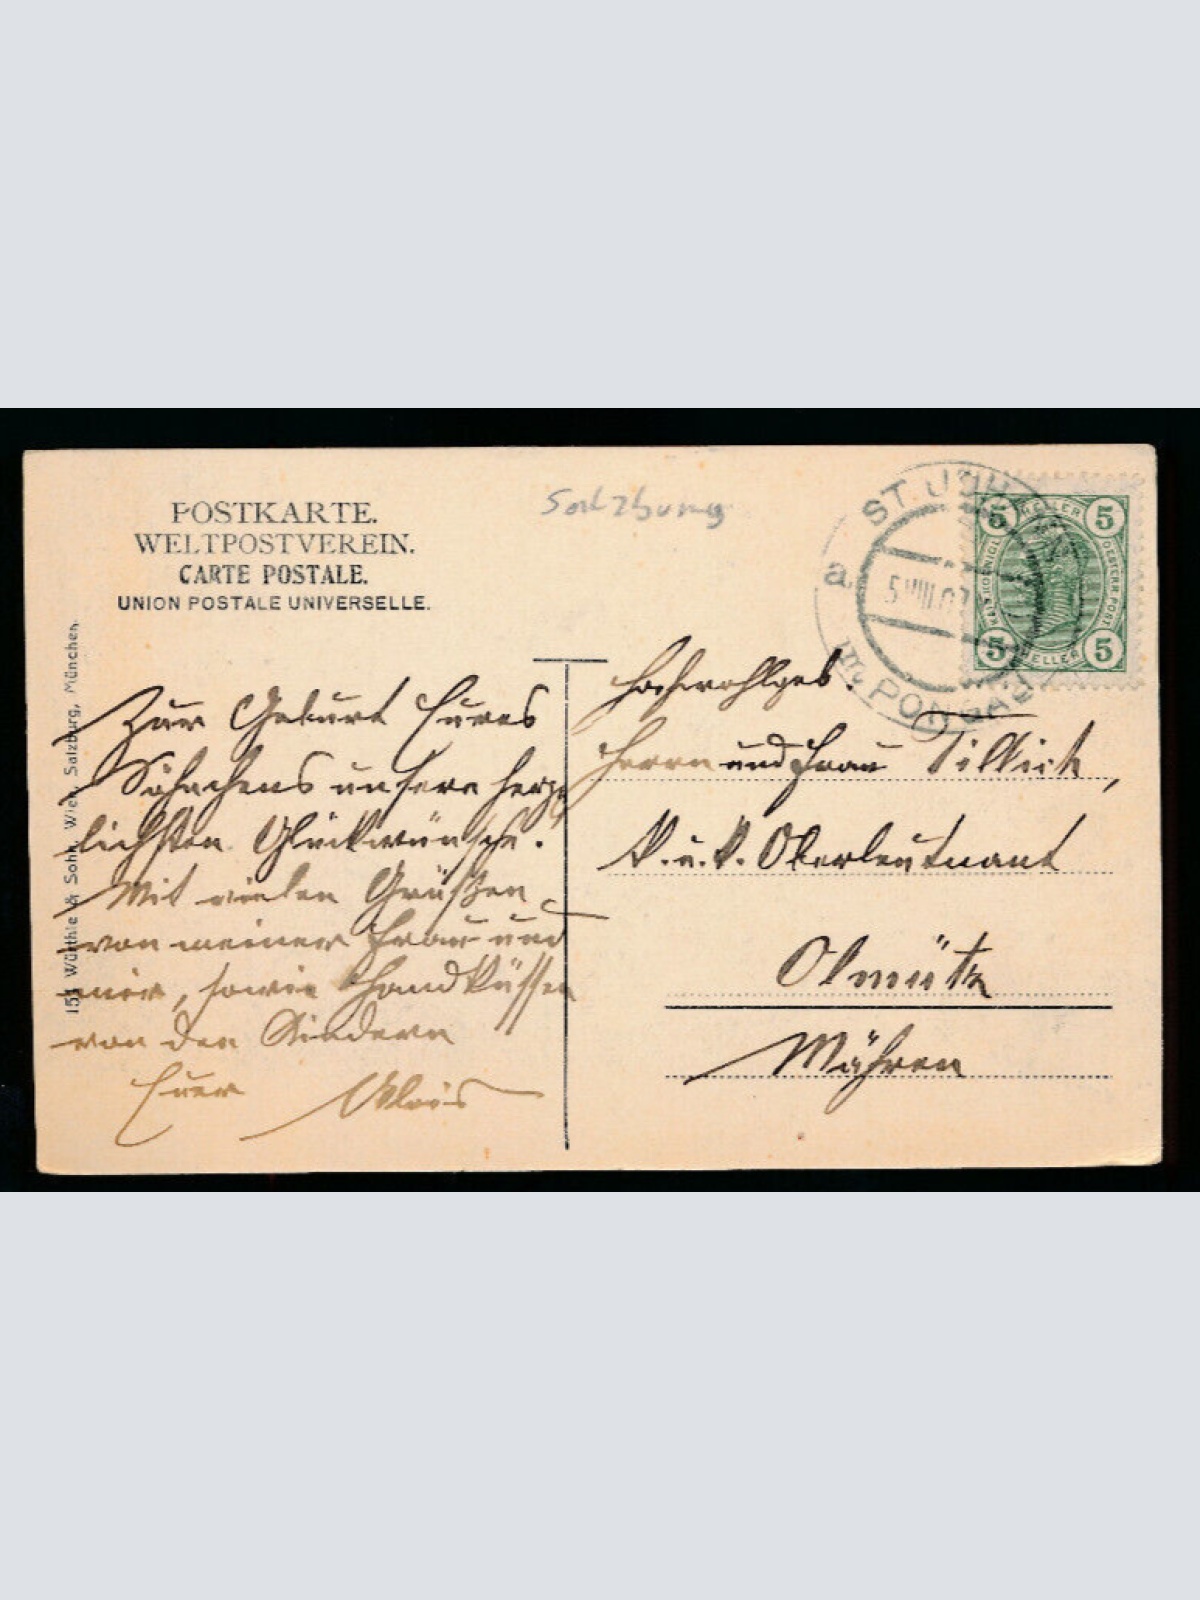 POSTKARTE.
WELTPOSTVEREIN.
CARTE POSTALE.
UNION POSTALE UNIVERSELLE.
Salzburg
ST. JOH
a
5 VIII 07
im PONGAU
5 HELLER 5
KAIS. KOENIGL. OESTERR. POST
5 HELLER 5
153 Würthle & Sohn, Wien, Salzburg, München.
Zur Geburt Eures
Söhnchens unsere herz-
lichsten Glückwünsche.
Mit vielen Grüßen
von meiner Frau und
mir, sowie Handküssen
von den Kindern
Euer Alois
Hochwohlgeb.
Herrn und Frau Tillich,
k. u. k. Oberleutnant
Olmütz
Mähren